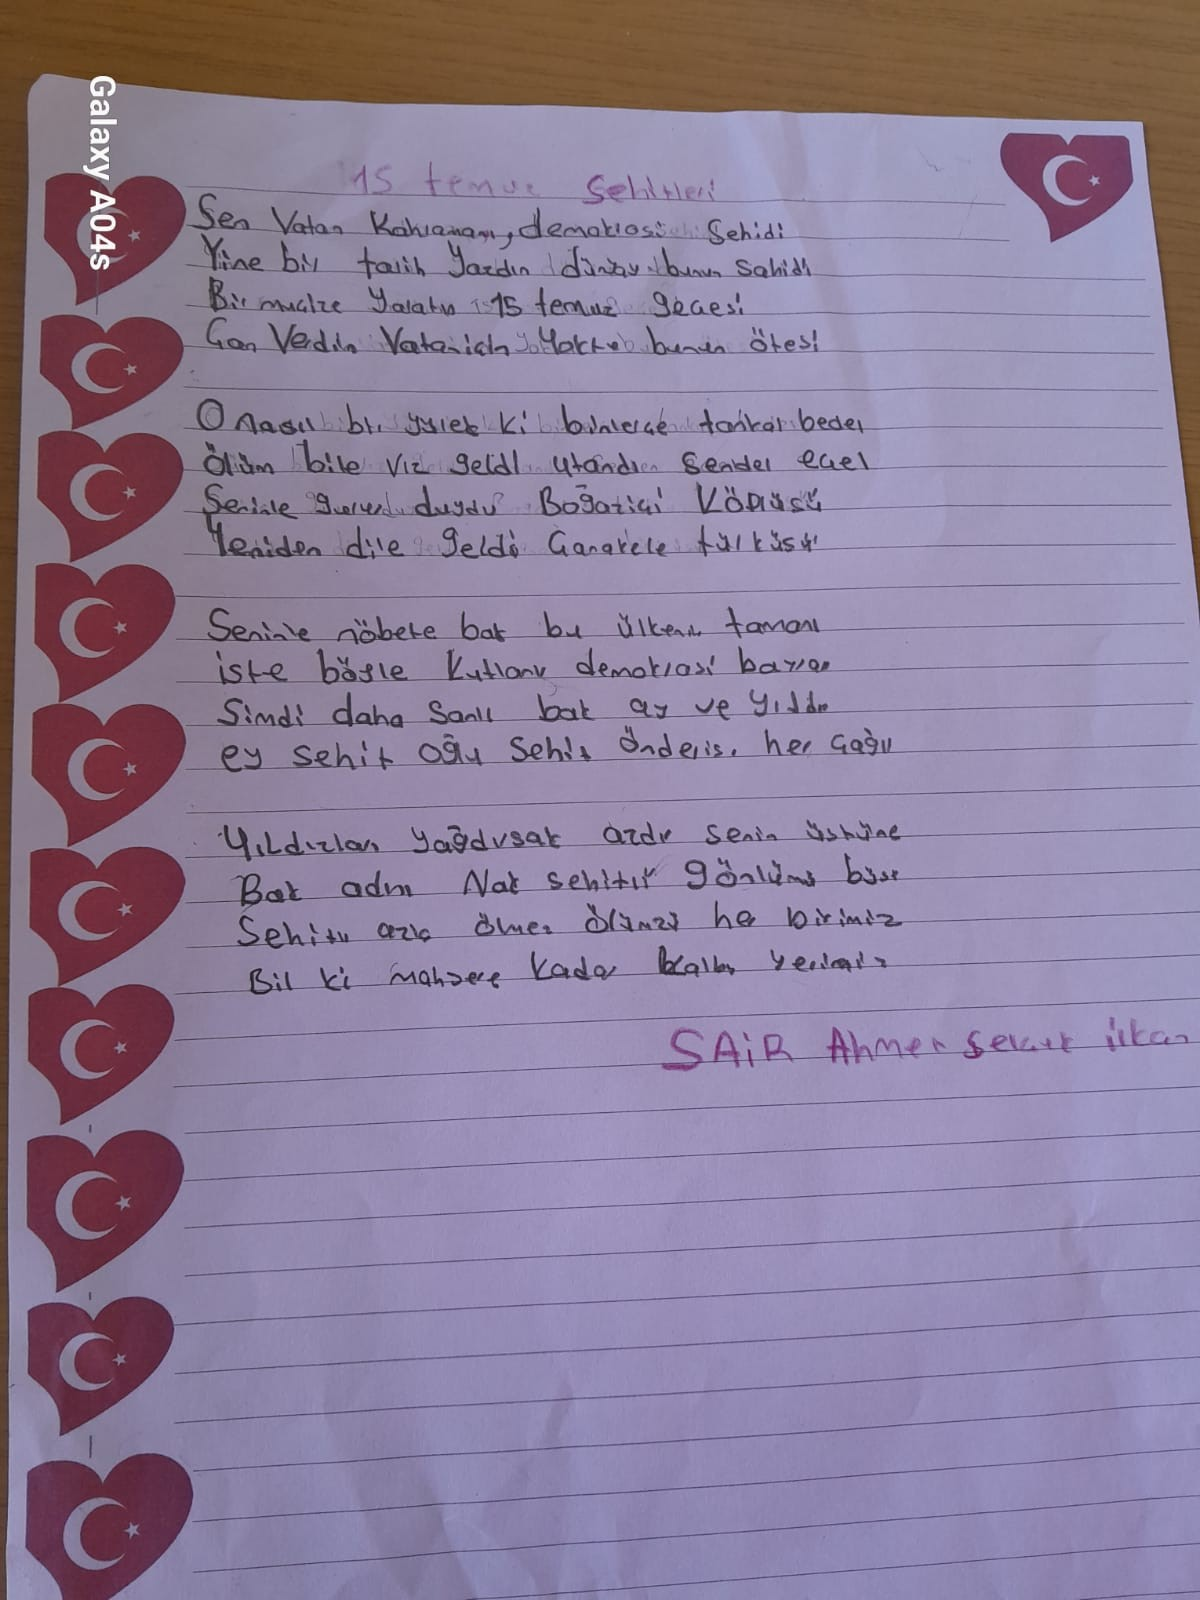 15 temuz Sehitleri
Sen Vatan Kahramanı, demokrasi Şehidi
Yine bir tarih Yazdın dünya bunun Sahidi
Bir mucize Yarattın 15 temuz gecesi
Can Verdin Vatan için Yoktur bunun ötesi
O nasıl bir yürek ki binlerce tanka bedel
Ölüm bile vız geldi utandı Senden ecel
Seninle gurur duydu Boğaziçi Köprüsü
Yeniden dile geldi Çanakkale türküsü
Seninle nöbete bak bu ülkenin tamamı
iste böyle kutlanır demokrasi bayramı
Simdi daha Sanlı bak ay ve Yıldız
ey sehit oğlu Sehit Önderisin her çağın
Yıldızları Yağdırsak azdır senin üstüne
Bak adın Nak sehittir gönlümüz
Sehitler ölmez her birimiz
Bil ki mahsere Kadar kalbim
SAiR Ahmet Şelçuk ilkan
Galaxy A04s